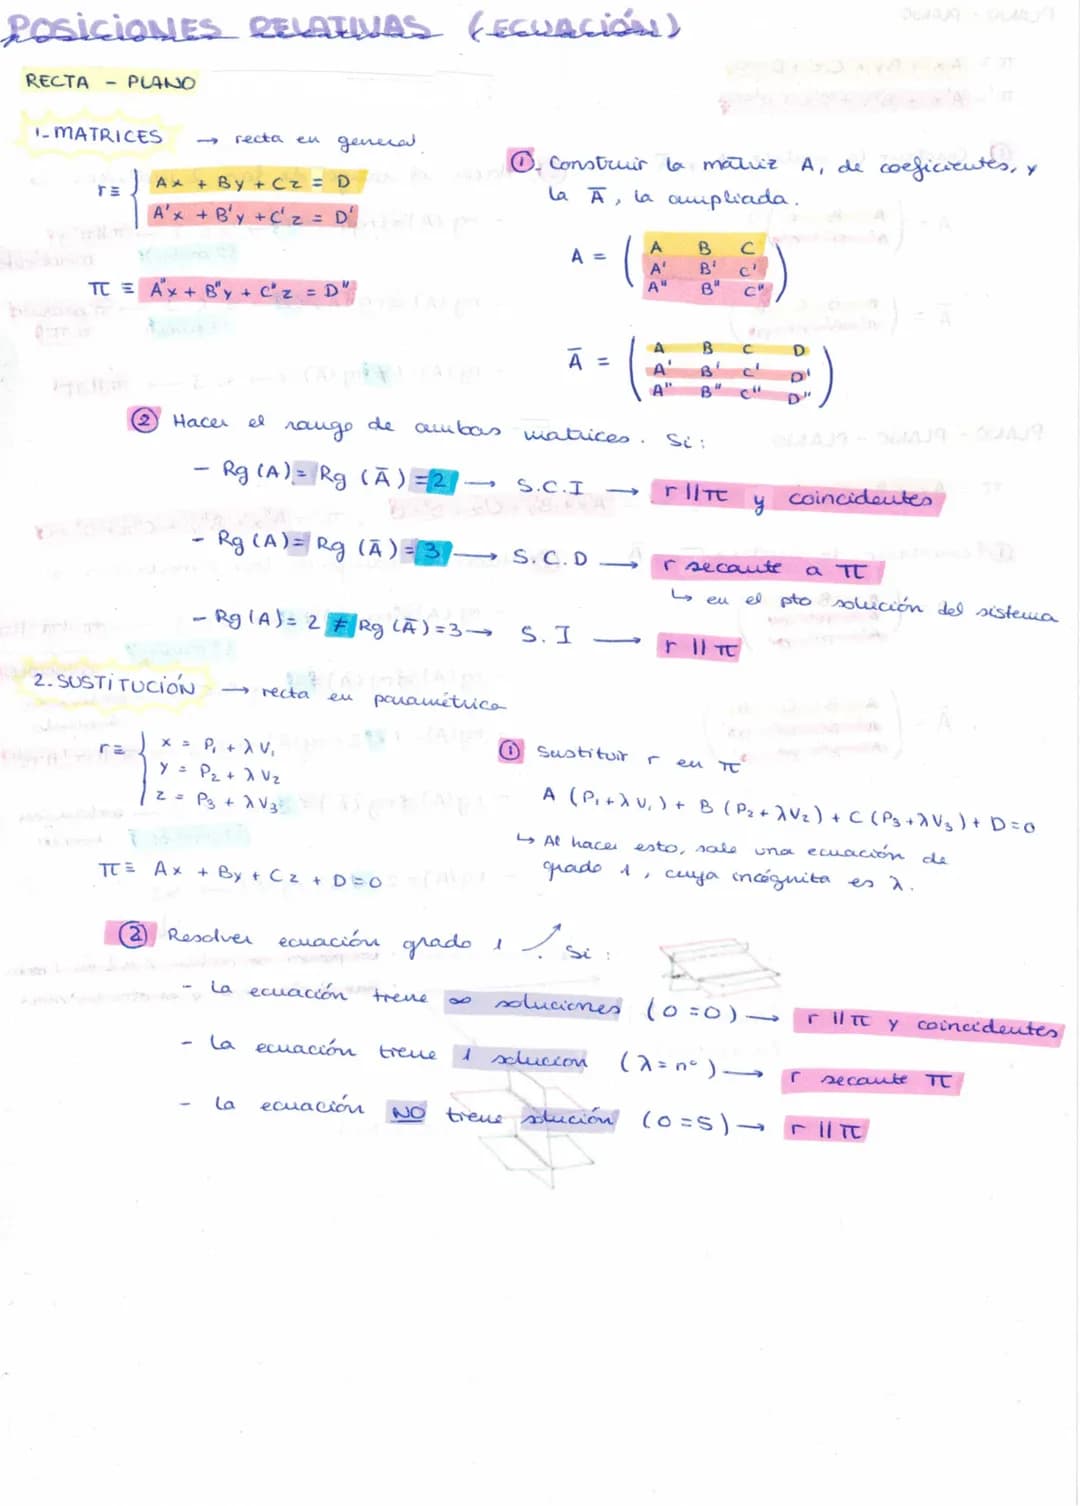 POSICIONES RELATIVAS (ECUACIÓN)
RECTA - PLANO
1- MATRICES → recta en general.
r ≡ { Ax + By + Cz = D
A'x + B'y + C'z = D'
π ≡ A"x + B"y + C"z = D"
① Construir la matriz A, de coeficientes, y
la Ā, la ampliada.
A = ( A B C
A' B' C'
A" B" C" )
Ā = ( A B C D
A' B' C' D'
A" B" C" D" )
② Hacer el rango de ambas matrices. Si:
- Rg (A) = Rg (Ā) = 2 → S.C.I → r || π y coincidentes
- Rg (A) = Rg (Ā) = 3 → S.C.D → r secante a π
↳ en el pto solución del sistema
- Rg (A) = 2 ≠ Rg (Ā) = 3 → S.I → r || π
2. SUSTITUCIÓN → recta en paramétrica
r ≡ { x = P₁ + λV₁
y = P₂ + λV₂
z = P₃ + λV₃
π ≡ Ax + By + Cz + D = 0
① Sustituir r en π
A (P₁ + λV₁) + B (P₂ + λV₂) + C (P₃ + λV₃) + D = 0
↳ Al hacer esto, sale una ecuación de
grado 1, cuya incógnita es λ.
② Resolver ecuación grado 1 ↗. Si:
- La ecuación tiene ∞ soluciones (0=0) → r || π y coincidentes
- La ecuación tiene 1 solución (λ = nº) → r secante π
- La ecuación NO tiene solución (0=5) → r || π